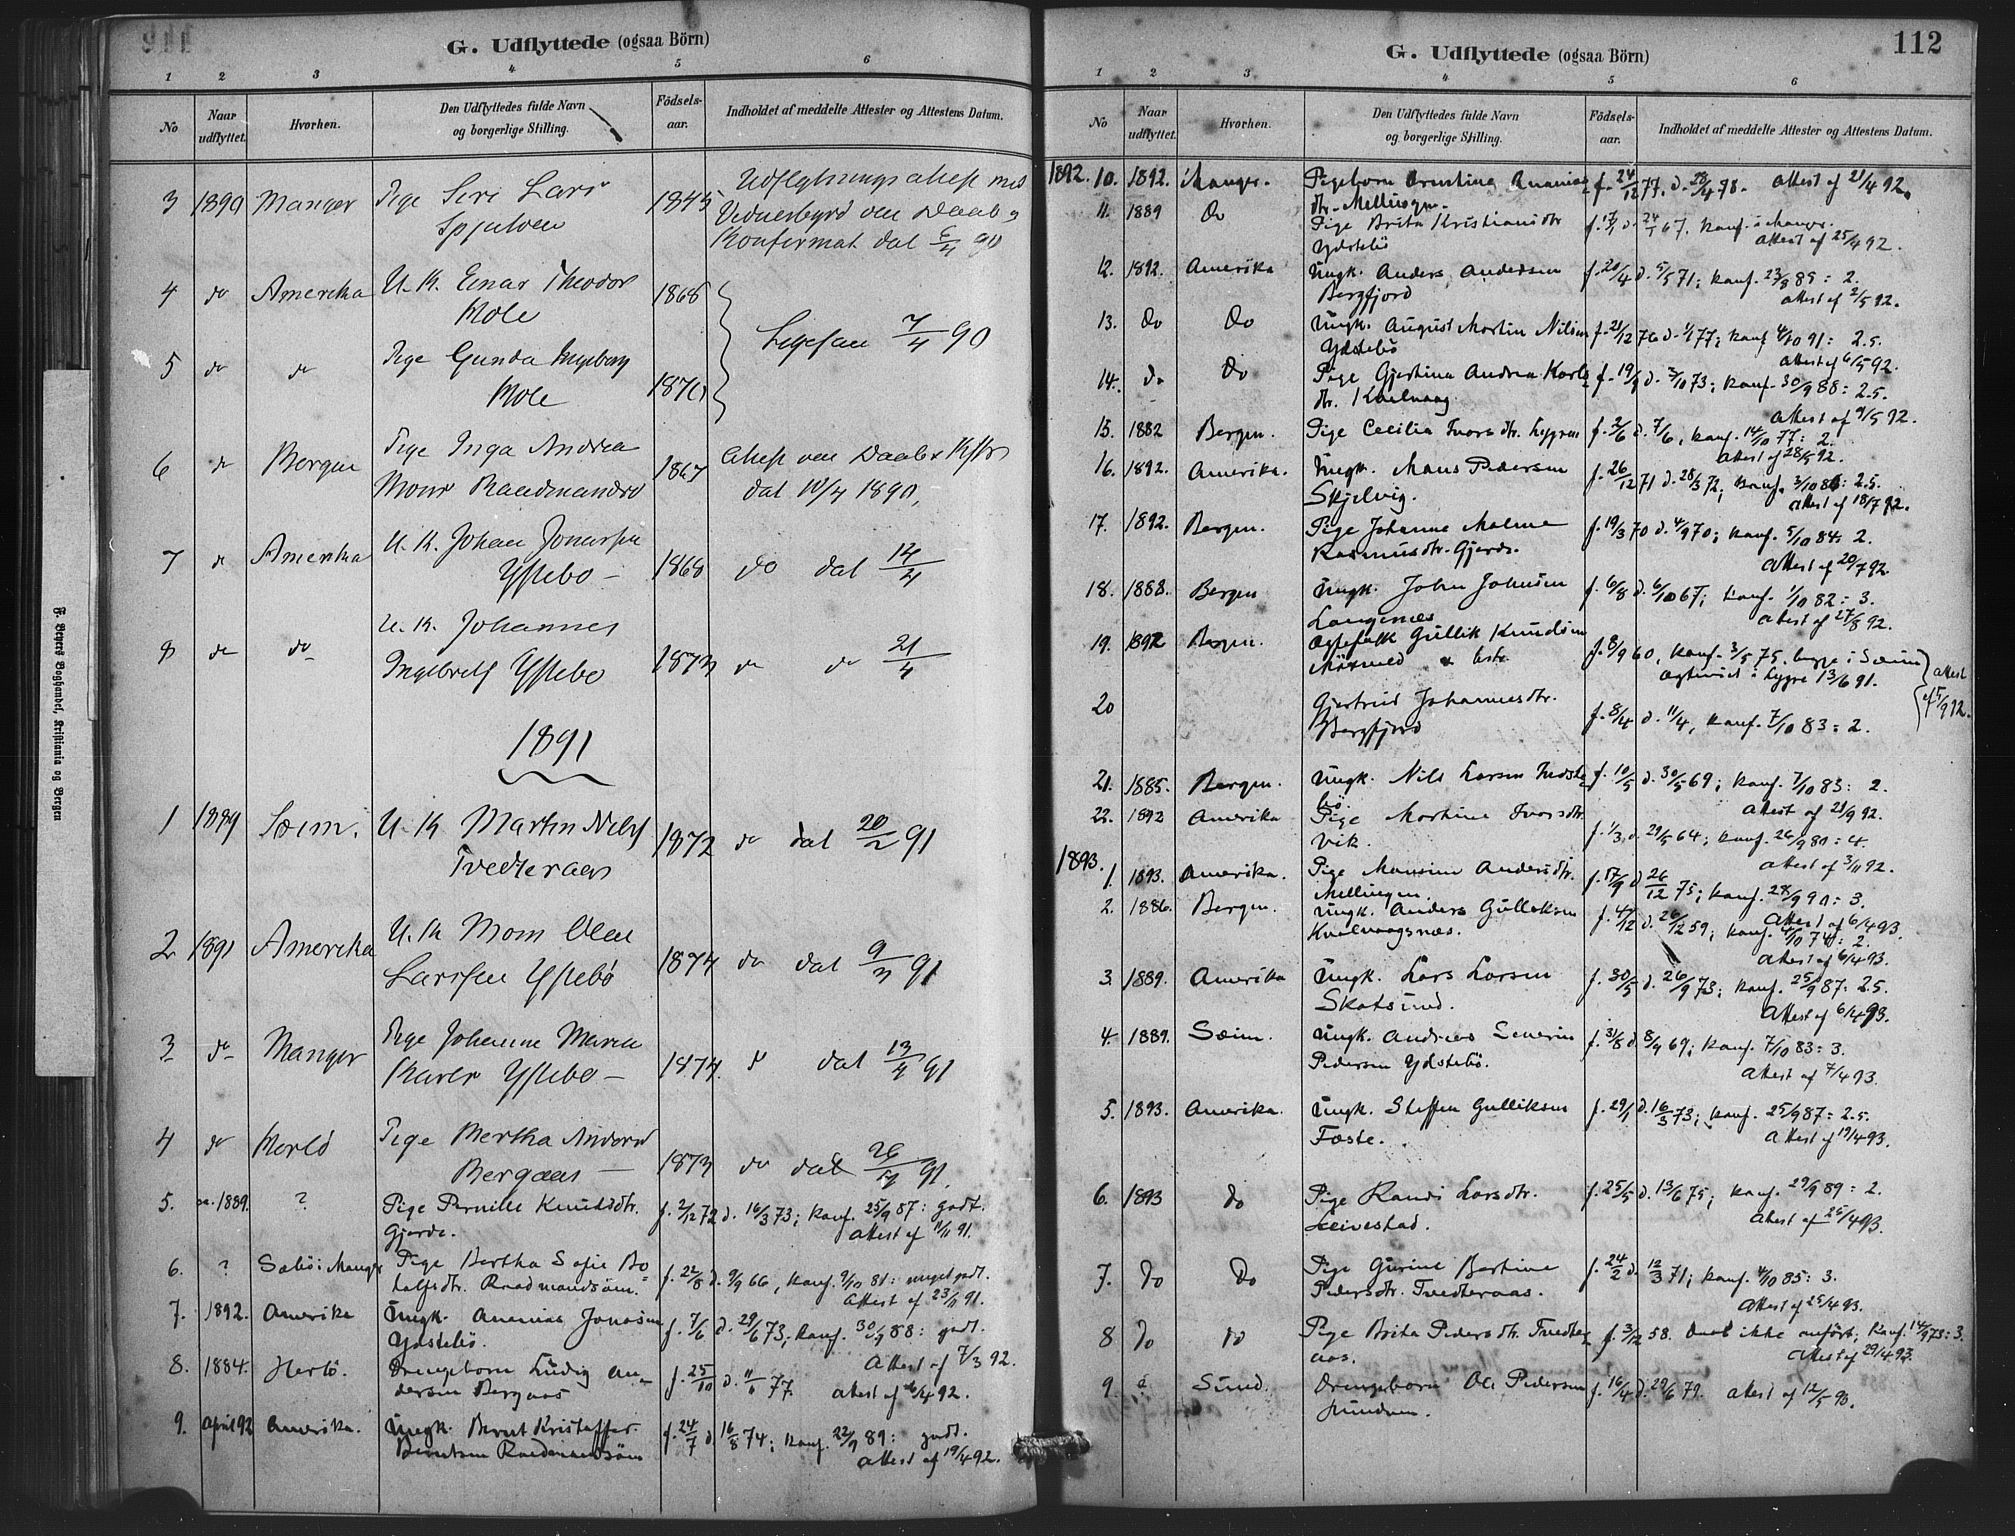 G. Udflyttede (ogsaa Börn)
1 2 3 4 5 6
No
Naar udflyttet.
Hvorhen.
Den Udflyttedes fulde Navn
og borgerlige Stilling.
Födsels-
aar.
Indholdet af meddelte Attester og Attestens Datum.
3 1890 Manger Pige Seri Lars 1845
Konfirmat dat 90
4 do Amerika U. K. Einar Theodor 1868
Mole
Ligesaa 7/4 90
5 do do Pige Gunda Ingeborg
Mole 1870
6 do Bergen Pige Inga Andrea 1867
dat 10/4 1890,
7 do Amerika U. K. Johan
Ystebo – 1868 do dat 12/4
8 do do U. K. Johannes
Ystebo 1873 do do 21/4
1891
1 1889 Sæim. U. K Martin Niels 1872 do dat 20/2 91
Tvedteraas
2 1891 Amerika U. K Mons Olai
Larssen Ystebö 1874 do dat 9/3 91
3 do Manger Pige Johanne Maria
Ystebo – 1874. dat 13/4 91
4 do Herlö Pige Bertha Anders
Bergaas – 1873 do dat 26/4 91.
5. ca. 1889. ? Pige Pernille Knutsdtr. f. 2/12 72 d. 16/3 73; konf. 25/9 87: godt.
Gjerde. Attest af 11/11 91.
6. ? Sæbö i Manger Pige Bertha Sofie Bo
talfsdtr. Raadmandsöen. f. 22/8 d. 9/9 66, konf. 9/10 81: meget godt.
Attest af 23/11 91.
7. 1892. Amerika Ungk. Ananias Jonasen f. 7/6 d. 29/6 73; konf. 30/9 88: godt.
Ydstebö. Attest af 7/3 92.
8. 1884. Herlö. Drengebarn Ludvig An-
dersen Bergaas f. 25/10 d. 11/11 77. Attest af 92.
9. April 92 Amerika. Ungk. Bernt Kristoffer f. 24/7 d. 16/8 74; konf. 22/9 89: godt.
Berntsen Raadmandsöen Attest af 19/4 92.
112
G. Udflyttede (ogsaa Börn)
1 2 3 4 5 6
No
Naar
udflyttet.
Hvorhen.
Den Udflyttedes fulde Navn
og borgerlige Stilling.
Födsels-
aar.
Indholdet af meddelte Attester og Attestens Datum.
1892. 10. 1892. Manger. Pigebarn Ananias f. 24/12 77. d. 28/4 78. Attest af 21/4 92.
dtr.
11. 1889 Do Pige Brita Kristiansdtr. f. 17/1 d. 24/1 67. Konf. i Manger.
Ydstebö Attest af 25/4 92.
12. 1892. Amerika Ungk. Anders Andersen f. 20/4 d. 5/5 71; konf. 23/8 85: 2.
Bergfjord Attest af 2/5 92.
13. Do Do Ungk. August Martin Nilsen f. 21/12 76 d. 1/1 77; konf. 4/10 91: 2.5.
Ydstebö Attest af 6/5 92.
14. do Do Pige Gjertina Andrea Karls f. 19/9 d. 3/10 73; konf. 30/9 88: 2.5.
dtr. Kvalvaag. Attest af 9/5 92.
15. 1882 Bergen. Pige Cecilia Ivarsdtr. f. 2/6 d. 7/6, konf. 14/10 77: 2.
Attest af 28/5 92.
16. 1892. Amerika. Ungk. Mons Pedersen f. 26/12 71 d. 28/3 72; konf. 3/10 86: 2.5.
Skjelvig. Attest af 18/7 92.
17. 1892. Bergen. Pige Johanna Malene f. 19/3 70 d. 4/9 70; konf. 5/10 84: 2.
Rasmusdtr. Gjerde. Attest af 20/7 92.
18. 1888. Bergen Ungk. John Johnsen f. 6/8 d. 6/10 67; konf. 1/10 82: 3.
Langenæs Attest af 27/8 92.
19. 1892 Bergen. Ægtefolk Gullik Knudsen f. 8/9 60, konf. 3/5 75. begge i Sæim
i Lygre 13/6 91. Attest
af 5/9 92.
20 Gjertrud Johannesdtr.
Bergfjord f. 8/4 d. 11/4, konf. 7/10 83: 2.
21. 1885. Bergen. Ungk. Nils Larsen Indste f. 10/5 d. 30/5 69; konf. 7/10 83: 2.
bö. Attest af 21/9 92.
22. 1892 Amerika Pige Martina Ivarsdtr.
Vik. f. 1/3 d. 29/5 64; konf. 26/9 80: 4.
Attest af 3/11 92.
1893. 1. 1893. Amerika. Pige Monsine Andersdtr. f. 17/9 d. 26/12 75; konf. 28/9 90: 3.
Mellingen. Attest af 6/4 93.
2. 1886. Bergen. Ungk. Anders Gulleksen f. 4/12 d. 26/12 59; konf. 4/10 74: 2.
Kvalvaagsnæs. Attest af 6/4 93.
3. 1889. Amerika Ungk. Lars Larsen f. 30/5 d. 26/9 73; konf. 25/9 87: 2.5.
Skotsund. Attest af 6/4 93.
4 1889. Sæim. Ungk. Andreas Severin f. 31/8 d. 8/9 69; konf. 7/10 83: 3.
Pedersen Ydstebö. Attest af 7/4 93.
5. 1893. Amerika. Ungk. Steffen Gulliksen f. 29/1 d. 16/3 73; konf. 25/9 87: 2.5.
Foste. Attest af 19/4 93.
6. 1893 Do Pige Randi Larsdtr. f. 25/5 d. 13/6 75; konf. 29/9 89: 2.
Leivestad. Attest af 25/4 93.
7. Do Do Pige Gurine Bertine f. 24/2 d. 12/3 71; konf. 4/10 85: 3.
Pedersdtr. Tvedteraas. Attest af 25/4 93.
8 Do Do Pige Brita Pedersdtr. Tvedter f. 3/12 58. Daab ikke anfört; konf. 14/9 73: 3.
aas. Attest af 29/4 93.
9 Sund. Drengebarn Ole Pedersen f. 16/4 d. 29/6 79. Attest af 12/5 93.
F. Beyers Boghandel, Kristiania og Bergen